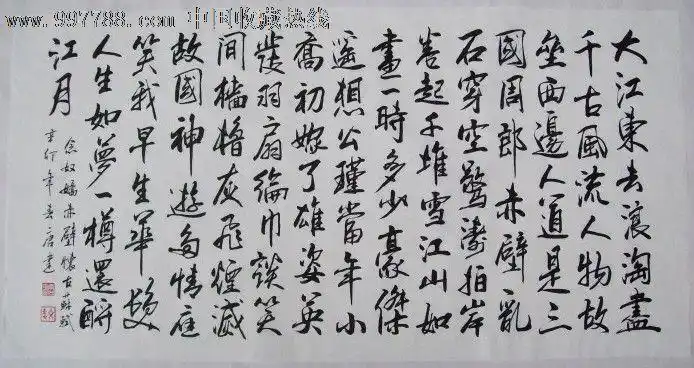 www.997788.com 中国收藏热线
大江東去浪淘盡
千古風流人物故
壘西邊人道是三
國周郎赤壁亂
石穿空驚濤拍岸
卷起千堆雪江山如
畫一時多少豪傑
遙想公瑾當年小
喬初嫁了雄姿英
發羽扇綸巾談笑
間檣櫓灰飛煙滅
故國神遊多情應
笑我早生華髮
人生如夢一樽還酹
江月
念奴嬌赤壁懷古蘇軾